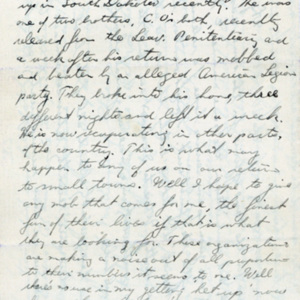 up in South Dakota recently. He was
one of two brothers, C.O.'s both, recently
released from the Leav. Penitentiary, and
a week after his return was mobbed
and beaten by an alleged American Legion
party. They broke into his home, three
different nights and left it a wreck.
He is now recuperating in other parts,
of the country. This is what may
happen to any of us on our return
to small towns. Well I hope to give
any mob that comes for me, the finest
fun of their lives if that is what
they are looking for. These organizations
are making a noise out of all proportion
to their numbers it seems to me. Well
there's no use in my getting het up now